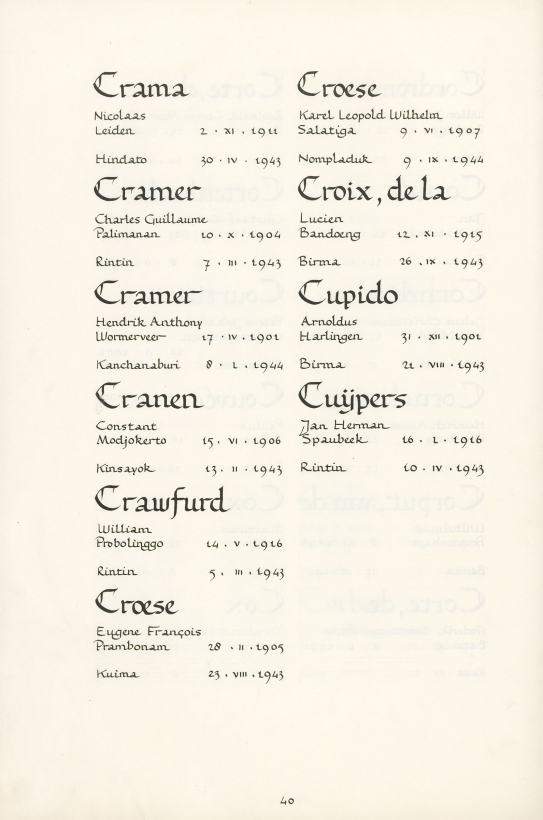 Crama
Nicolaas
Leiden 2 · XI · 1911
Hindato 30 · IV · 1943
Cramer
Charles Guillaume
Palimanan 10 · X · 1904
Rintin 7 · III · 1943
Cramer
Hendrik Anthony
Wormerveer 17 · IV · 1901
Kanchanaburi 8 · I · 1944
Cranen
Constant
Modjokerto 15 · VI · 1906
Kinsayok 13 · II · 1943
Crawfurd
William
Probolinggo 14 · V · 1916
Rintin 5 · III · 1943
Croese
Eugene François
Prambonam 28 · II · 1905
Kuima 23 · VIII · 1943
Croese
Karel Leopold Wilhelm
Salatiga 9 · VI · 1907
Nompladuk 9 · IX · 1944
Croix, de la
Lucien
Bandoeng 12 · XI · 1915
Birma 26 · IX · 1943
Cupido
Arnoldus
Harlingen 31 · XII · 1901
Birma 21 · VIII · 1943
Cuÿpers
Jan Herman
Spaubeek 16 · I · 1916
Rintin 10 · IV · 1943
40